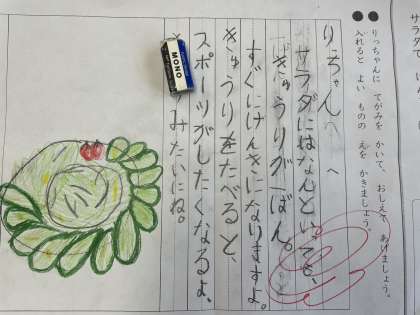 サラダで
●りっちゃんに てがみを かいて、おしえて あげましょう。
●入れると よい ものの えを かきましょう。
りっちゃんへ
サラダにはなんといっても、
きゅうりが一ばん。
すぐにげんきになりますよ。
きゅうりをたべると、
スポーツがしたくなるよ、
みたいにね。
MONO